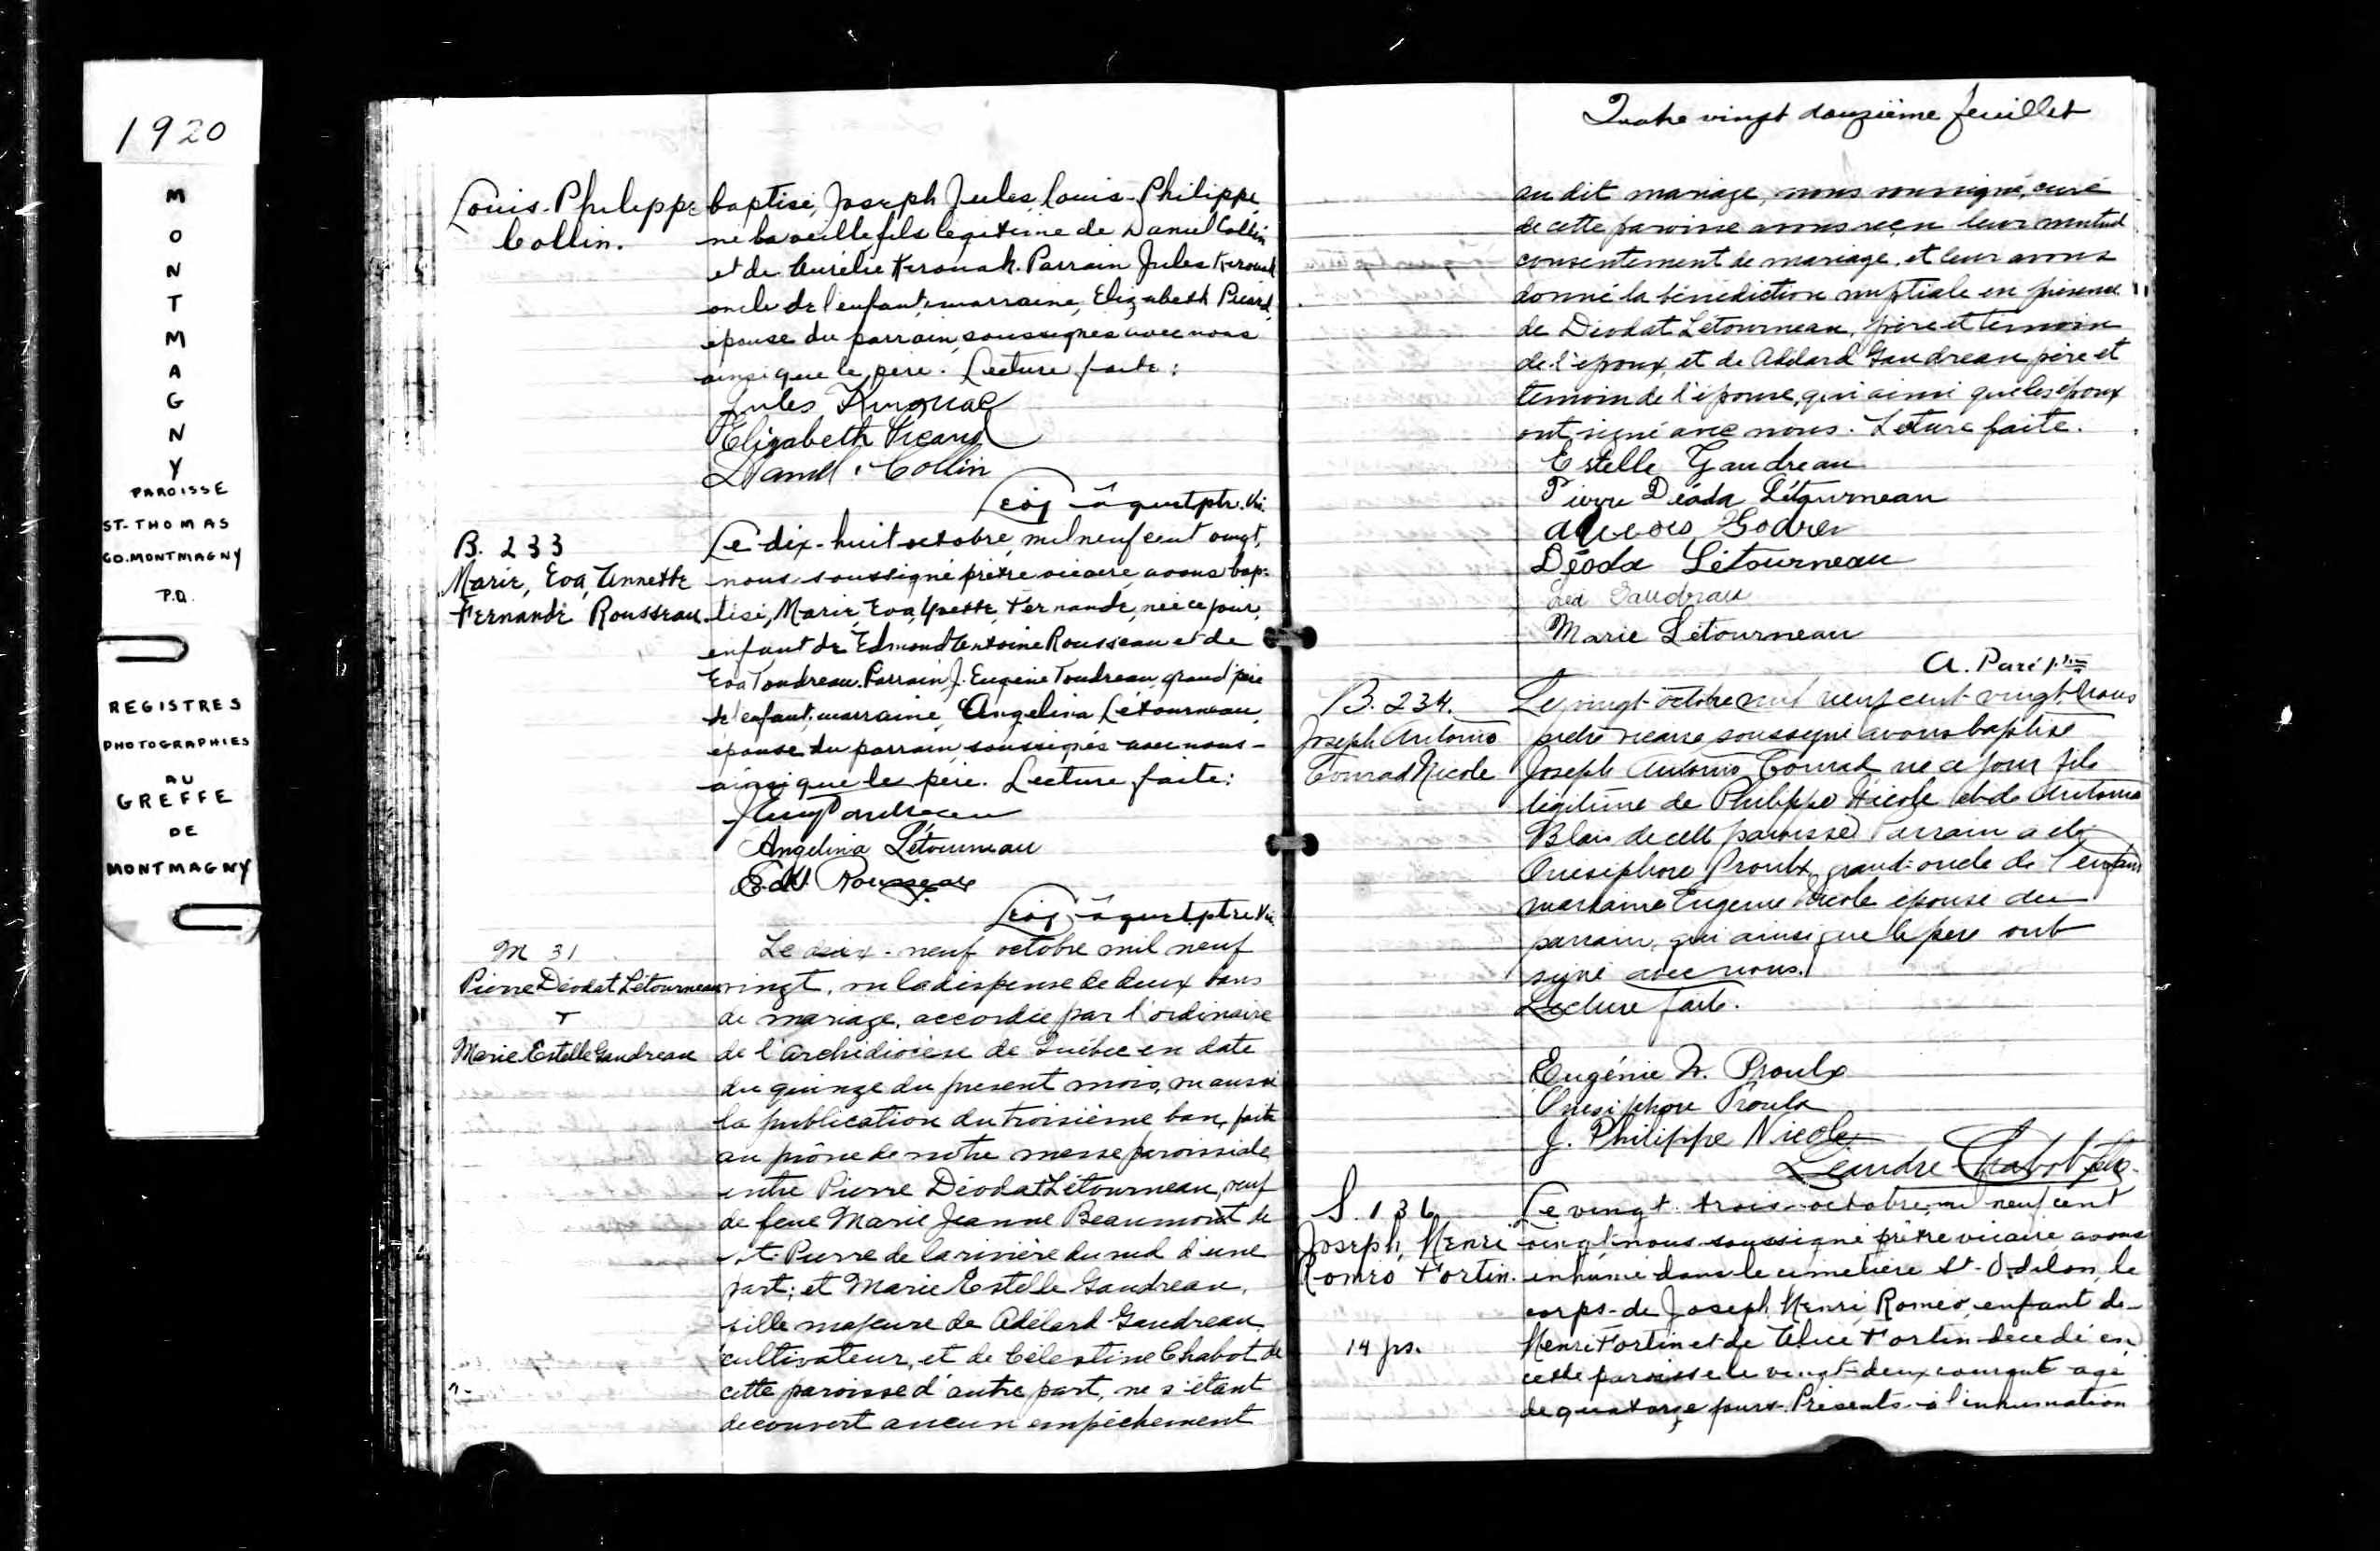 1920
MONTMAGNY
PAROISSE
ST-THOMAS
CO. MONTMAGNY
P.Q.
REGISTRES
PHOTOGRAPHIES
AU
GREFFE
DE
MONTMAGNY
Louis-Philippe
Collin.
baptisé, Joseph Jules, Louis-Philippe,
né la veille fils légitime de Daniel Collin
et de Aurélie Kérouak. Parrain Jules Kérouak
oncle de l'enfant, marraine, Elizabeth Picard,
épouse du parrain, soussignés avec nous
ainsi que le père. Lecture faite:
Jules Kirouac
Elizabeth Picard
Daniel Collin
ptre. Vic.
B. 233
Marie, Eva, Annette
Fernande Rousseau
Le dix-huit octobre, mil neuf cent vingt,
nous soussigné prêtre vicaire avons bap-
tisé, Marie, Eva, Yvette, Fernande, née ce jour,
enfant de Edmond Antoine Rousseau et de
Eva Toudreau. Parrain J. Eugène Toudreau, grand père
de l'enfant, marraine, Angelina Létourneau,
épouse du parrain soussignés avec nous-
ainsi que le père. Lecture faite:
Angelina Létourneau
Ed. Rousseau
ptre Vic.
M 31
Pierre Déodat Létourneau
+
Marie Estelle Gaudreau
Le dix-neuf octobre mil neuf
vingt, vu la dispense de deux bans
de mariage, accordée par l'ordinaire
de l'Archidiocèse de Québec en date
du quinze du present mois, vu aussi
la publication du troisième ban, faite
au prône de notre messe paroissiale
entre Pierre Déodat Létourneau, veuf
de feue Marie Jeanne Beaumont de
St-Pierre de la rivière du sud d'une
part; et Marie Estelle Gaudreau,
fille majeure de Adélard Gaudreau,
cultivateur, et de Célestine Chabot de
cette paroisse d'autre part, ne s'étant
découvert aucun empêchement
Quatre vingt douzième feuillet
au dit mariage, nous soussigné, curé
de cette paroisse avons reçu leur mutuel
consentement de mariage, et leur avons
donné la bénédiction nuptiale en présence
de Déodat Létourneau, père et témoin
de l'époux, et de Adélard Gaudreau père et
témoin de l'épouse, qui ainsi que les époux
ont signé avec nous. Leture faite.
Estelle Gaudreau
Pierre Déoda Létourneau
Godreu
Déoda Létourneau
Gaudreau
Marie Létourneau
A. Paré ptre
B. 234.
Joseph Antonio
Conrad Nicole
Le vingt octobre mil neuf cent vingt, nous
prêtre vicaire soussigné avons baptisé
Joseph Antonio Conrad né ce jour fils
légitime de Philippe Nicole et de Antonia
Blais de cette paroisse. Parrain a été
Onésiphore Proulx, grand-oncle de l'enfant
marraine Eugénie Nicole épouse du
parrain, qui ainsi que le père ont
signé avec nous.
Lecture faite.
Eugénie N. Proulx
Onésiphore Proulx
J. Philippe Nicole
Léandre Chabot
S. 136
Joseph, Henri
Roméo Fortin.
14 jrs.
Le vingt-trois octobre, mil neuf cent
vingt nous soussigné prêtre vicaire, avons
inhumé dans le cimetière St-Odilon, le
corps de Joseph, Henri, Roméo, enfant de
Henri Fortin et de Alice Fortin décédé en
cette paroisse le vingt-deux courant agé
de quatorze jours. Présents à l'inhumation